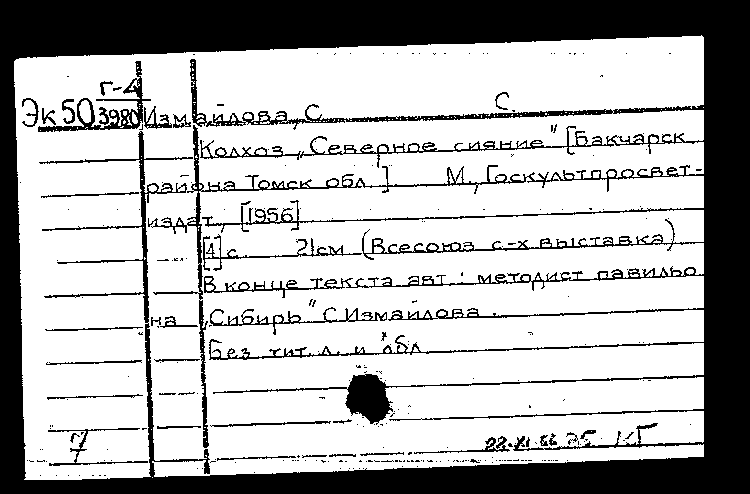 Г-4
Эк 50 3980 Измайлова, С. С.
Колхоз „Северное сияние" [Бакчарск.
района Томск обл.]. М., Госкультпросвет-
издат, [1956]
[4] с. 21см (Всесоюз с-х выставка)
В конце текста авт.: методист павильо
на „Сибирь" С.Измайлова.
Без тит. л. и обл.
7 КГ